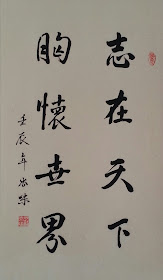 志在天下
胸懷世界
壬辰年